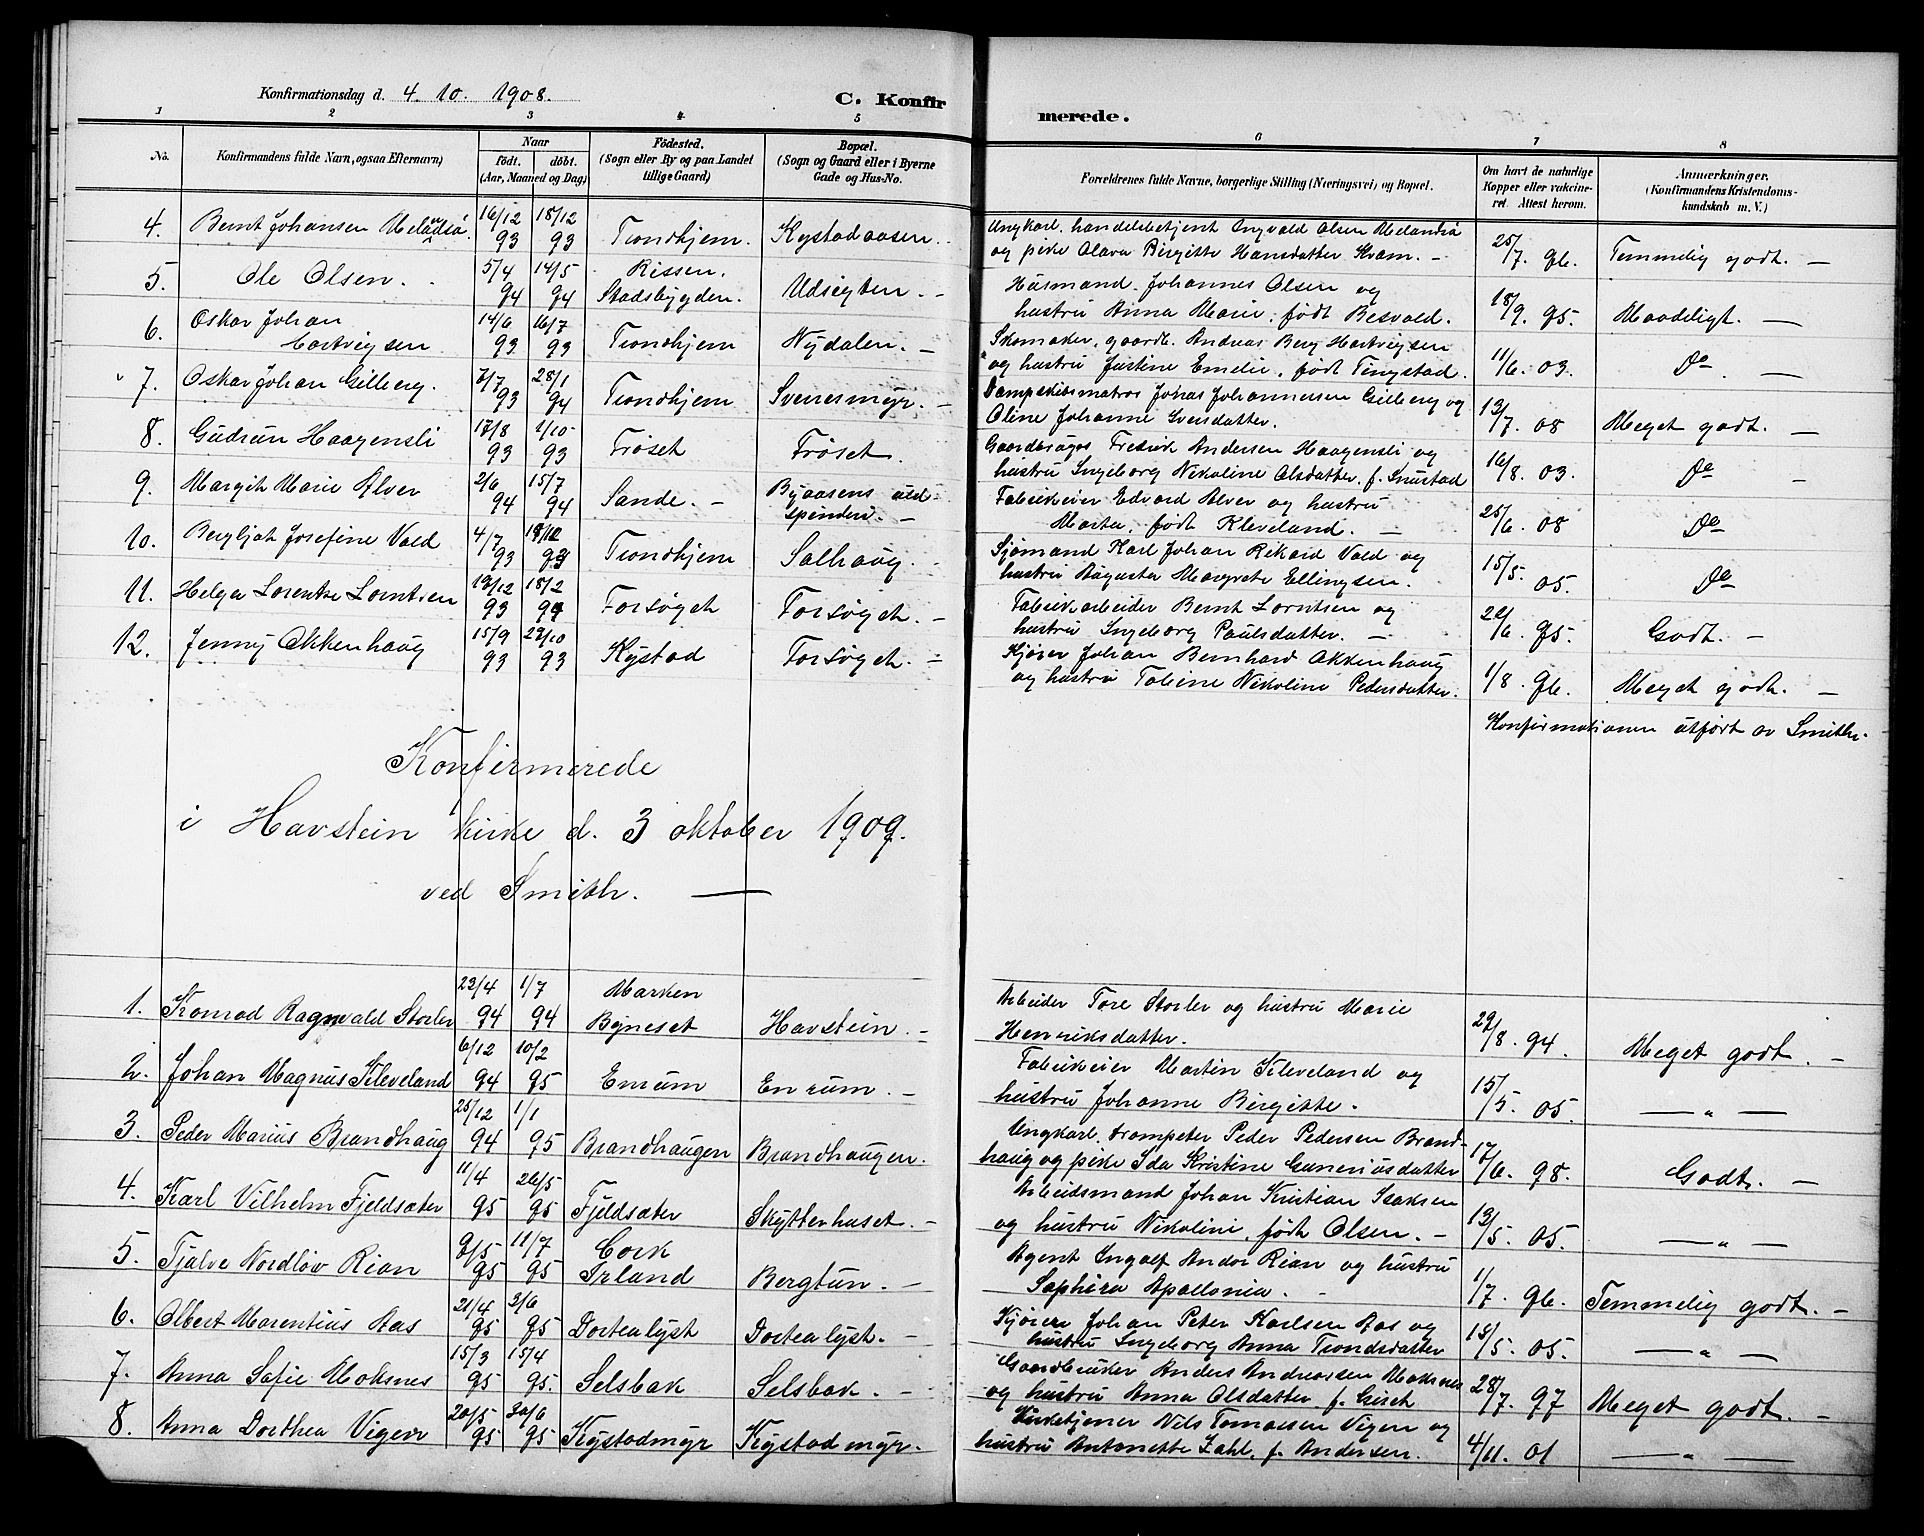 Konfirmationsdag d. 4. 10. 1908.
C. Konfirmerede.
1 2 3 4 5 6 7 8
No. Konfirmandens fulde Navn, ogsaa Efternavn) Naar født. døbt. (Aar, Maaned og Dag) Fødested. (Sogn eller By og paa Landet tillige Gaard) Bopæl. (Sogn og Gaard eller i Byerne Gade og Hus-No. Forældrenes fulde Navne, borgerlige Stilling (Næringsvei) og Bopæl. Om havt de naturlige Kopper eller vakcineret. Attest herom. Anmærkninger. (Konfirmandens Kristendomskundskab m. V.)
4. Bernt Johansen Melandsø. 16/12 93 18/12 93 Trondhjem. Kystadaasen. Ungkarl, handelsbetjent Ingvald Olsen Melandsø
og pike Olava Birgitte Hansdatter Kram. – 25/7. 96. Temmelig godt. –
5. Ole Olsen. 5/4 94 14/5 94 Rissen. Stadsbygden. Udsigten. – Husmand Johannes Olsen og
hustru Anna Marie, født Besvald. 18/9. 95. Maadeligt. –
6. Oskar Johan Hartvigsen 14/6 93 16/7 93 Trondhjem Nydalen. – Skomaker, gaardb. Andreas Berg Hartvigsen
og hustru Justine Emelie, født Tingstad. 11/6. 03. Do –
7. Oskar Johan Gilberg. 7/7 93 28/1 94 Trondhjem Svenesmyr. – Dampskibsmatros Johas Johannesen Gilberg og
Oline Johanne Iversdatter. 13/7. 08 Meget godt. –
8. Gudrun Haagensli 17/8 93 1/10 93 Frøset Frøset. Gaardbruger Fredrik Andersen Haagensli og
hustru Ingeborg Nikoline Olsdatter, f. Snustad 16/8. 03. Do –
9. Margith Marie Alver 2/6 94 15/7 94 Sande. – Byaasens uldspinderi. – Fabrikeier Edvard Alver og hustru
Marta, født Kleveland. – 25/6. 08 Do
10. Bergljot Josefine Vold 4/7 93 93 Trondhjem Solhaug. Sjømand Karl Johan Rikard Vold og
hustru Augusta Margrete Ellingsen. 15/5. 05. Do
11. Helga Lorentze Lorntsen 12/12 93 18/2 94 Forsøget Forsøget. – Fabrikarbeider Bernt Lorntsen og
hustru Ingeborg Paulsdatter. – 22/6. 95. Godt. –
12. Jenny Okkenhaug 15/9 93 22/10 93 Kystad Forsøget. – Kjører Johan Bernhard Okkenhaug
og hustru Tobine Nikoline Pedersdatter. 1/8. 96. Meget godt. –
Konfirmationen utført av Smith.
Konfirmerede
i Havstein kirke d. 3 oktober 1909.
ved Smith. –
1. Konrad Ragnvald Storler 22/4 94 1/7 94 Marken Bynesset Havstein. – Arbeider Tore Storler og hustru Marie
Henriksdatter. 29/8. 94. Meget godt. –
2. Johan Magnus Kleveland 6/12 94 10/2 95 Enrum Enrum. – Fabrikeier Martin Kleveland og
hustru Johanne Birgitte. 15/5. 05. – " –
3. Peder Marius Brandhaug 25/12 94 1/1 95 Brandhaugen Brandhaugen. Ungkarl, trompeter Peder Pedersen Brandhaug
og pike Ida Kristine Guneriusdatter 17/6. 98. Godt. –
4. Karl Vilhelm Fjeldsæter 11/4 95 26/5 95 Fjeldsæter Skytterhuset. – Arbeidsmand Johan Kristian Isaksen
og hustru Nikoline, født Olsen. – 13/5. 05. – " –
5. Tjalve Nordløv Rian 9/5 95 11/7 95 Cork Irland Bergtun. – Agent Ingolf Andor Rian og hustru
Saphira Apollonia. 1/7. 96. Temmelig godt. –
6. Olbert Marentius Aas 21/4 95 3/6 95 Dortealyst Dortealyst. – Kjører Johan Peter Karlsen Aas og
hustru Ingeborg Anna Trondsdatter 15/5. 05. – " –
7. Anna Sofie Moksnes 15/3 95 15/4 95. Selsbak Selsbak. – Gaardbruker Anders Andreasen Moksnes
og hustru Anna Olsdatter f. 28/7. 97 Meget godt. –
8. Anna Dorthea Vigen 20/5 95 30/6 95 Kystadmyr Kystadmyr. Kirketjener Nils Tomassen Vigen og
hustru Antonette Zahl, f. Andersen. 4/11. 01 – " –